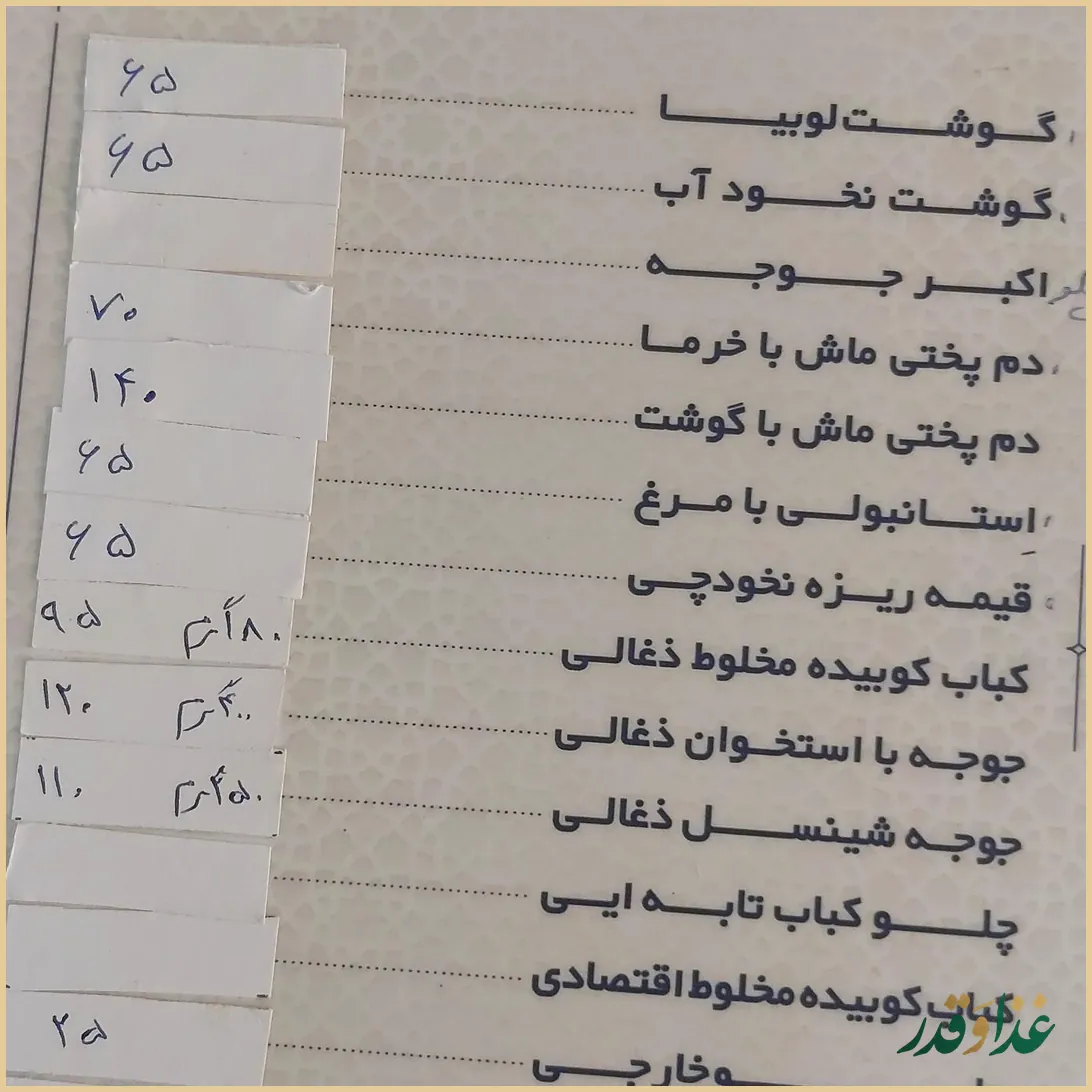 گوشت لوبیا ........ ۶۵
گوشت نخود آب ........ ۶۵
اکبر جوجه ........
دم پختی ماش با خرما ........ ۷۰
دم پختی ماش با گوشت ........ ۱۴۰
استانبولی با مرغ ........ ۶۵
قیمه ریزه نخودچی ........ ۶۵
کباب کوبیده مخلوط ذغالی ........ ۱۸۰ گرم ۹۵
جوجه با استخوان ذغالی ........ ۴۰۰ گرم ۱۲۰
جوجه شینسل ذغالی ........ ۴۵۰ گرم ۱۱۰
چلو کباب تابه ایی ........
کباب کوبیده مخلوط اقتصادی ........
خارجی ........ ۲۵
غذا و قدر